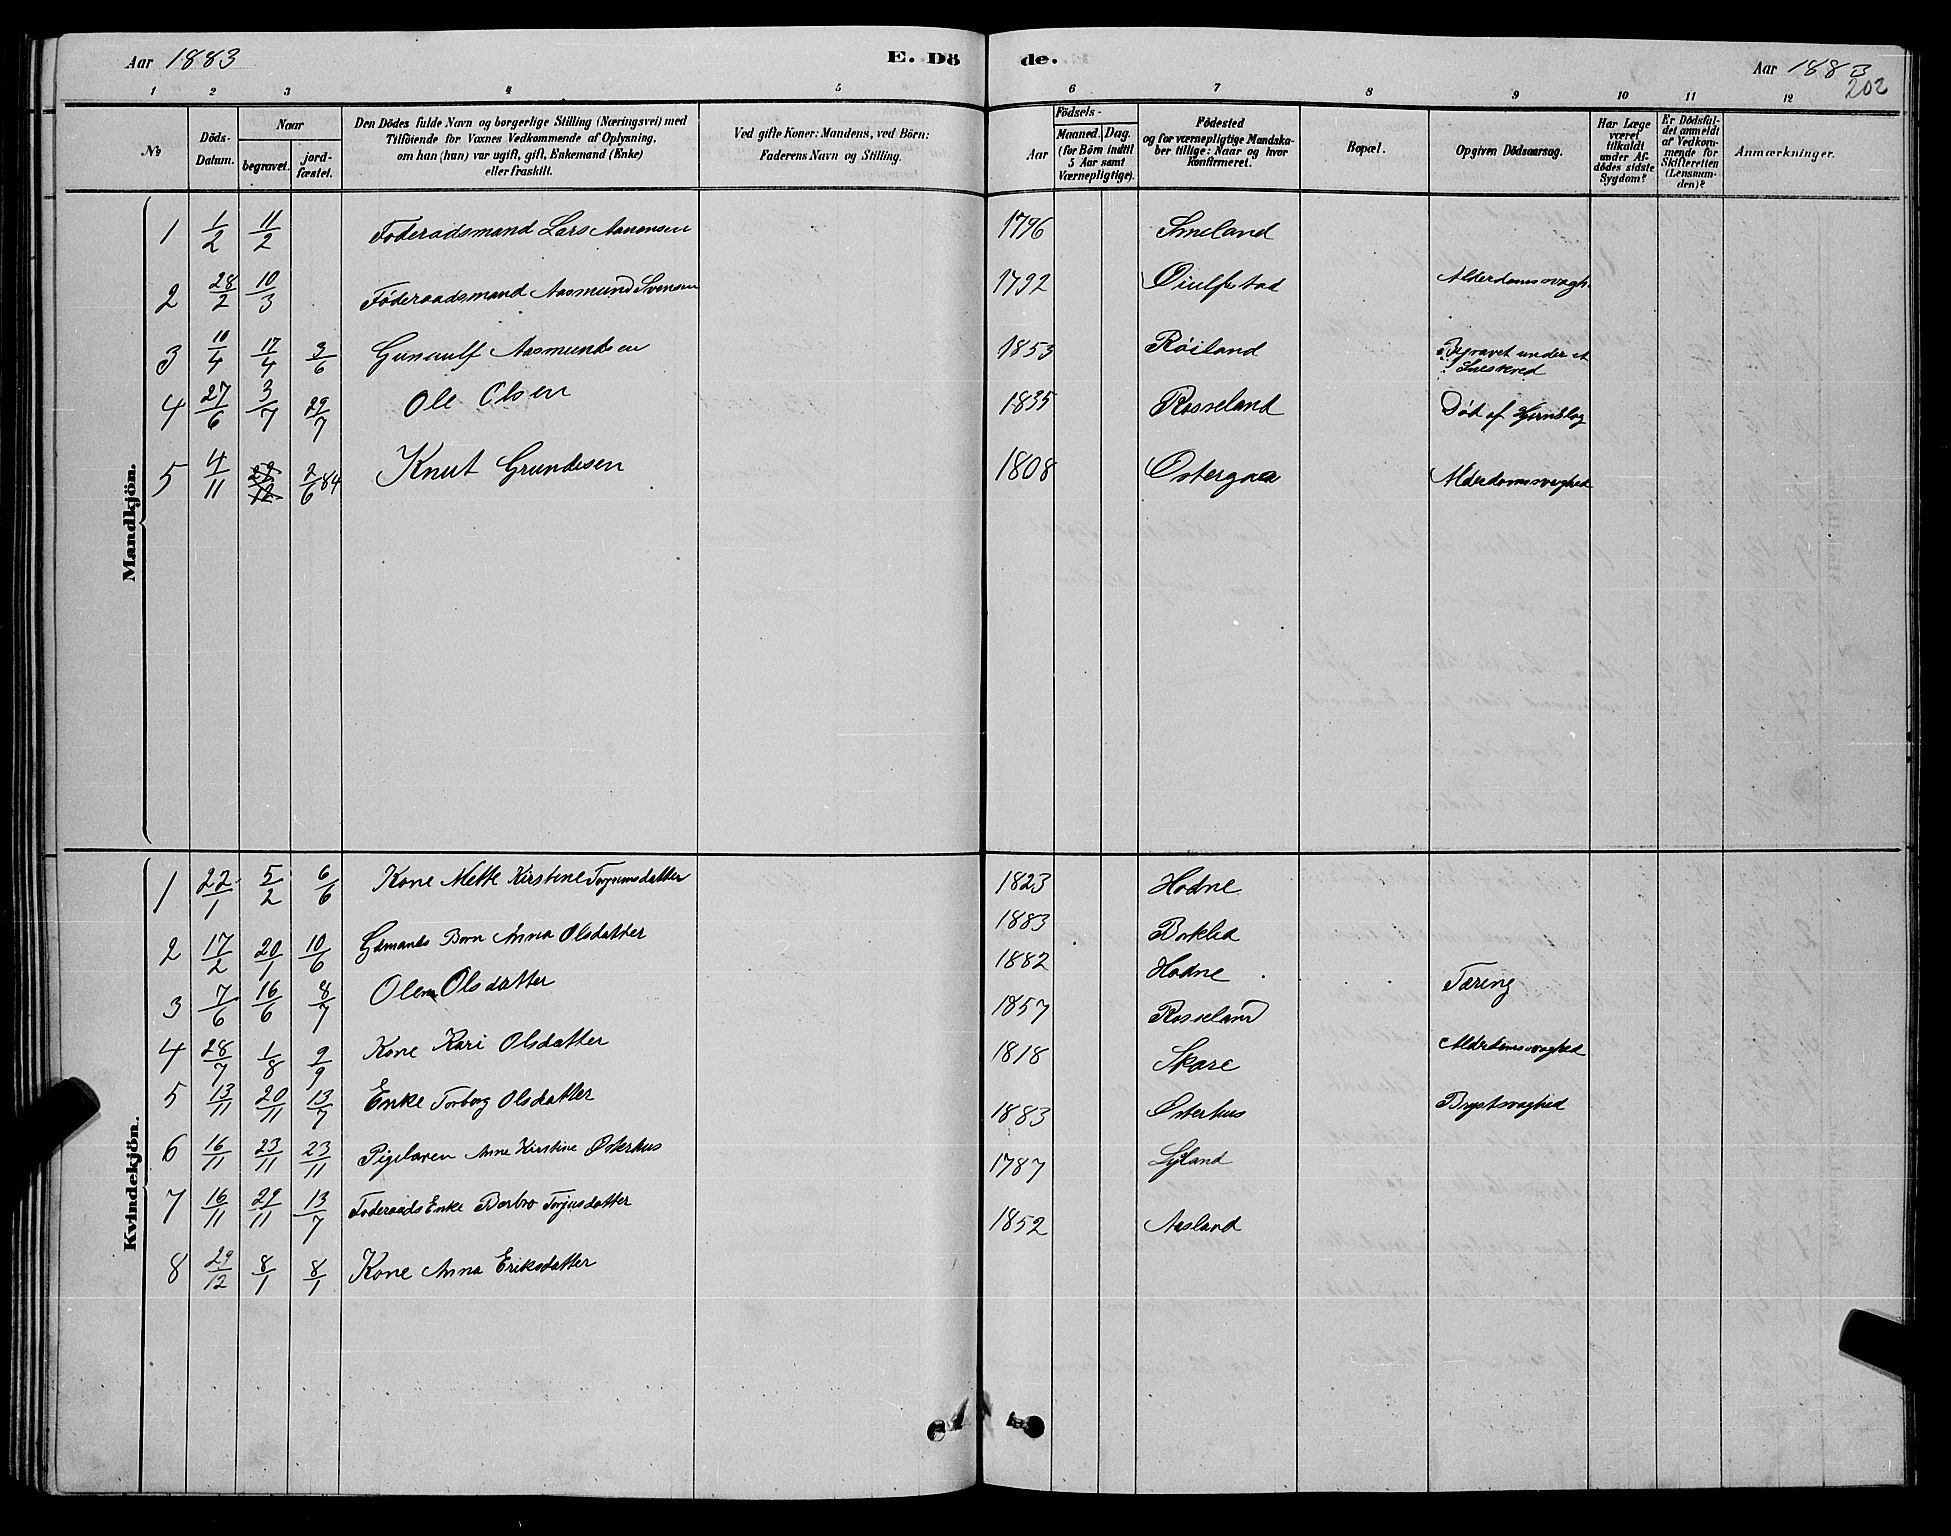 Aar 1883 E. Dö de. Aar 1883
202
1 2 3 4 5 6 7 8 9 10 11 12
№ Döds-Datum. Naar begravet. jord-fæstet. Den Dödes fulde Navn og borgerlige Stilling (Næringsvei) med Tilföiende for Voxnes Vedkommende af Oplysning, om han (hun) var ugift, gift, Enkemand (Enke) eller fraskilt. Ved gifte Koner: Mandens, ved Börn: Faderens Navn og Stilling. Födsels- Aar Maaned. Dag. (for Börn indtil 5 Aar samt Værnepligtige). Födested og for værnepligtige Mandskaber tillige: Naar og hvor konfirmeret. Bopæl. Opgiven Dödsaarsag. Har Læge været tilkaldt under Afdödes sidste Sygdom? Er Dödsfaldet anmeldt af Vedkommende for Skifteretten (Lensmanden)? Anmærkninger.
Mandkjön.
1 1/2 11/2 Föderaadsmand Lars Aanonsen 1796 Smeland
2 28/2 10/3 Föderaadsmand Aasmund Svensen 1792 Øiulfstad Alderdomssvagh.
3 10/4 17/4 3/6 Gunnulf Aasmundsen 1853 Röiland Begravet under et
Sneskred
4 27/6 3/7 29/7 Ole Olsen 1835 Rosseland Död af Hjernslag
5 4/11 2/6 84 Knut Grundesen 1808 Ostergaa Alderdomssvaghed
Kvindekjön.
1 22/1 5/2 6/6 Kone Mette Kirstine Torjumsdatter 1823 Hodne
2 17/2 20/1 10/6 Gdmands Barn Anna Olsdatter 1883 Borklid
3 7/6 16/6 8/7 Olena Olsdatter 1882 Hodne Tæring
4 28/7 1/8 9/9 Kone Kari Olsdatter 1857 Rosseland
5 13/11 20/11 13/7 Enke Torborg Olsdatter 1818 Skare Alderdomssvaghed
6 16/11 23/11 23/11 Pigebarn Anne Kirstine Østerhus 1883 Østerhus Brystsvaghed
7 16/11 29/11 13/7 Föderaads Enke Barbro Torjusdatter 1787 Lyland
8 29/12 8/1 8/1 Kone Anna Eriksdatter 1852 Aasland